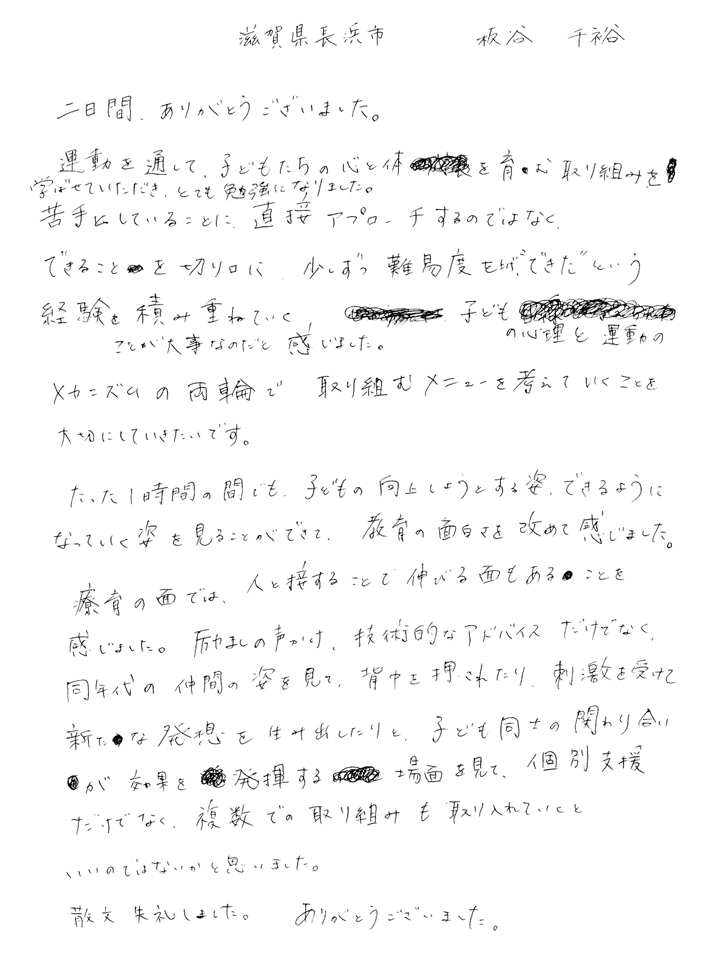 滋賀県長浜市 板谷 千裕
二日間、ありがとうございました。
運動を通して、子どもたちの心と体を育む取り組みを
学ばせていただき、とても勉強になりました。
苦手にしていることに、直接アプローチするのではなく、
できることを切り口に、少しずつ難易度を上げ、"できた"という
経験を積み重ねていく
ことが大事なのだと感じました。
子どもの心理と運動の
メカニズムの両輪で 取り組むメニューを考えていくことを
大切にしていきたいです。
たった1時間の間でも、子どもの向上しようとする姿、できるように
なっていく姿を見ることができて、教育の面白さを改めて感じました。
療育の面では、人と接することで伸びる面もあることを
感じました。励ましの声かけ、技術的なアドバイスだけでなく、
同年代の仲間の姿を見て、背中を押されたり、刺激を受けて
新たな発想を生み出したりと、子ども同士の関わり合い
が効果を発揮する場面を見て、個別支援
だけでなく、複数での取り組みも取り入れていくと
いいのではないかと思いました。
散文失礼しました。 ありがとうございました。